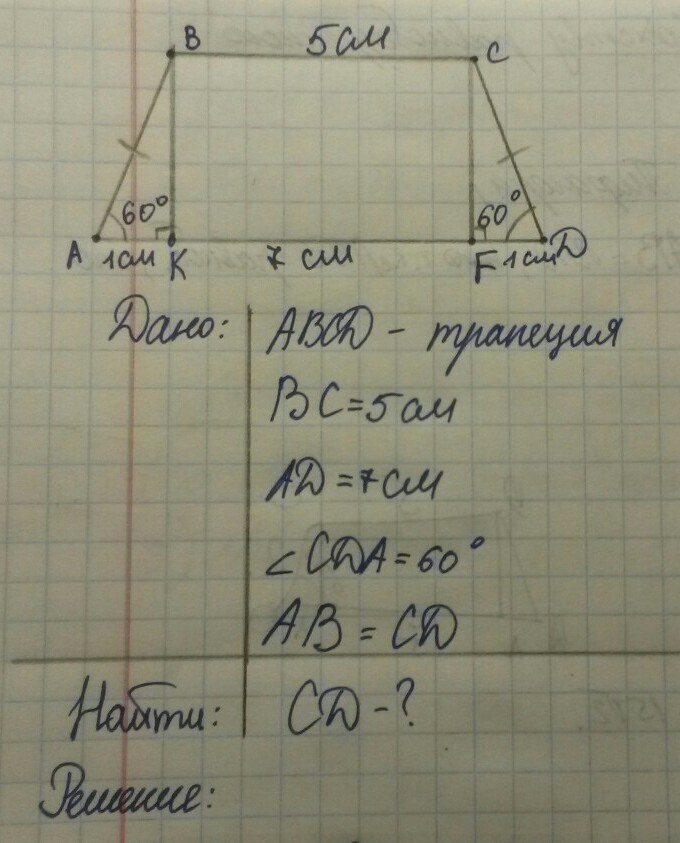 B 5 см C
60° 60°
A 1 см K 7 см F 1 см D
Дано: ABCD – трапеция
BC = 5 см
AD = 7 см
∠CDA = 60°
AB = CD
Найти: CD – ?
Решение: